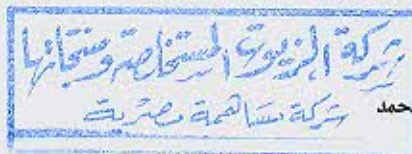 شركة الزيوت المستخلصة ومنتجاتها
حمد
شركة مساهمة مصرية